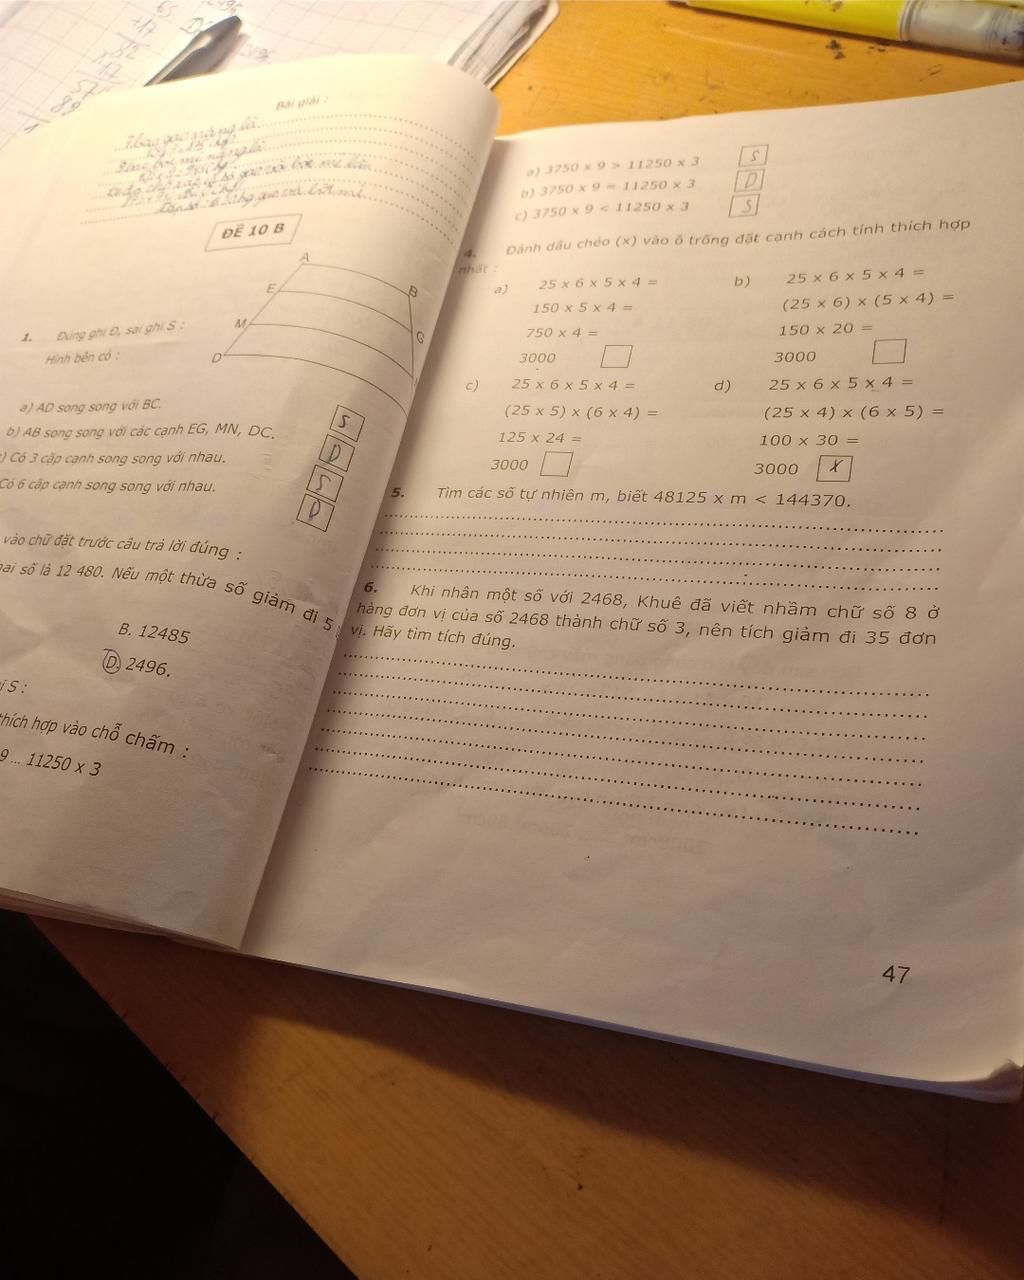 2496
Bài giải :
ĐỀ 10 B
A
B
E
G
M
D
1. Đúng ghi Đ, sai ghi S :
Hình bên có :
a) AD song song với BC. S
b) AB song song với các cạnh EG, MN, DC. Đ
Có 3 cặp cạnh song song với nhau. S
Có 6 cặp cạnh song song với nhau. Đ
vào chữ đặt trước câu trả lời đúng :
hai số là 12 480. Nếu một thừa số giảm đi 5
B. 12485
D. 2496.
S :
thích hợp vào chỗ chấm :
9 ... 11250 x 3
a) 3750 x 9 > 11250 x 3 S
b) 3750 x 9 = 11250 x 3 Đ
c) 3750 x 9 < 11250 x 3 S
4. Đánh dấu chéo (x) vào ô trống đặt cạnh cách tính thích hợp
nhất :
a) 25 x 6 x 5 x 4 =
150 x 5 x 4 =
750 x 4 =
3000
b) 25 x 6 x 5 x 4 =
(25 x 6) x (5 x 4) =
150 x 20 =
3000
c) 25 x 6 x 5 x 4 =
(25 x 5) x (6 x 4) =
125 x 24 =
3000
d) 25 x 6 x 5 x 4 =
(25 x 4) x (6 x 5) =
100 x 30 =
3000 X
5. Tìm các số tự nhiên m, biết 48125 x m < 144370.
6. Khi nhân một số với 2468, Khuê đã viết nhầm chữ số 8 ở
hàng đơn vị của số 2468 thành chữ số 3, nên tích giảm đi 35 đơn
vị. Hãy tìm tích đúng.
47